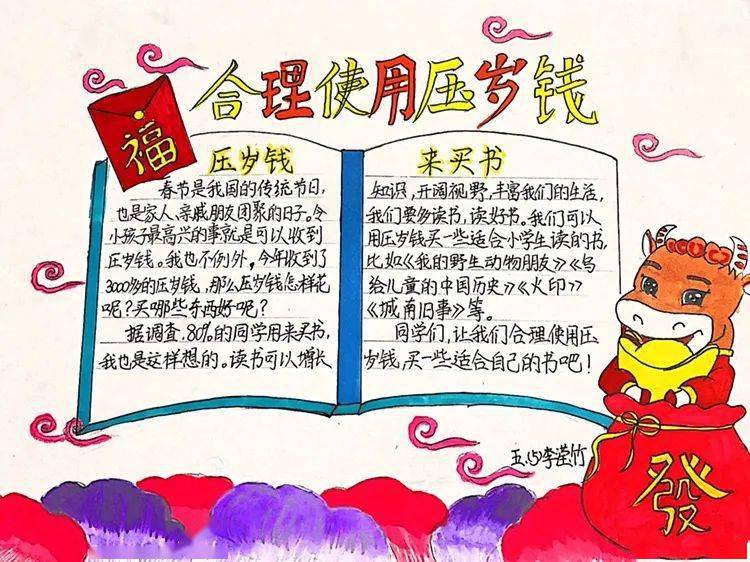 合理使用压岁钱
福
压岁钱
春节是我国的传统节日,
也是家人、亲戚朋友团聚的日子。令
小孩子最高兴的事就是可以收到
压岁钱。我也不例外,今年收到了
3000多的压岁钱,那么压岁钱怎样花
呢?买哪些东西好呢?
据调查,80%的同学用来买书,
我也是这样想的。读书可以增长
来买书
知识,开阔视野,丰富我们的生活,
我们要多读书,读好书。我们可以
用压岁钱买一些适合小学生读的书,
比如《我的野生动物朋友》《写
给儿童的中国历史》《火印》
《城南旧事》等。
同学们,让我们合理使用压
岁钱,买一些适合自己的书吧!
李滢竹
發